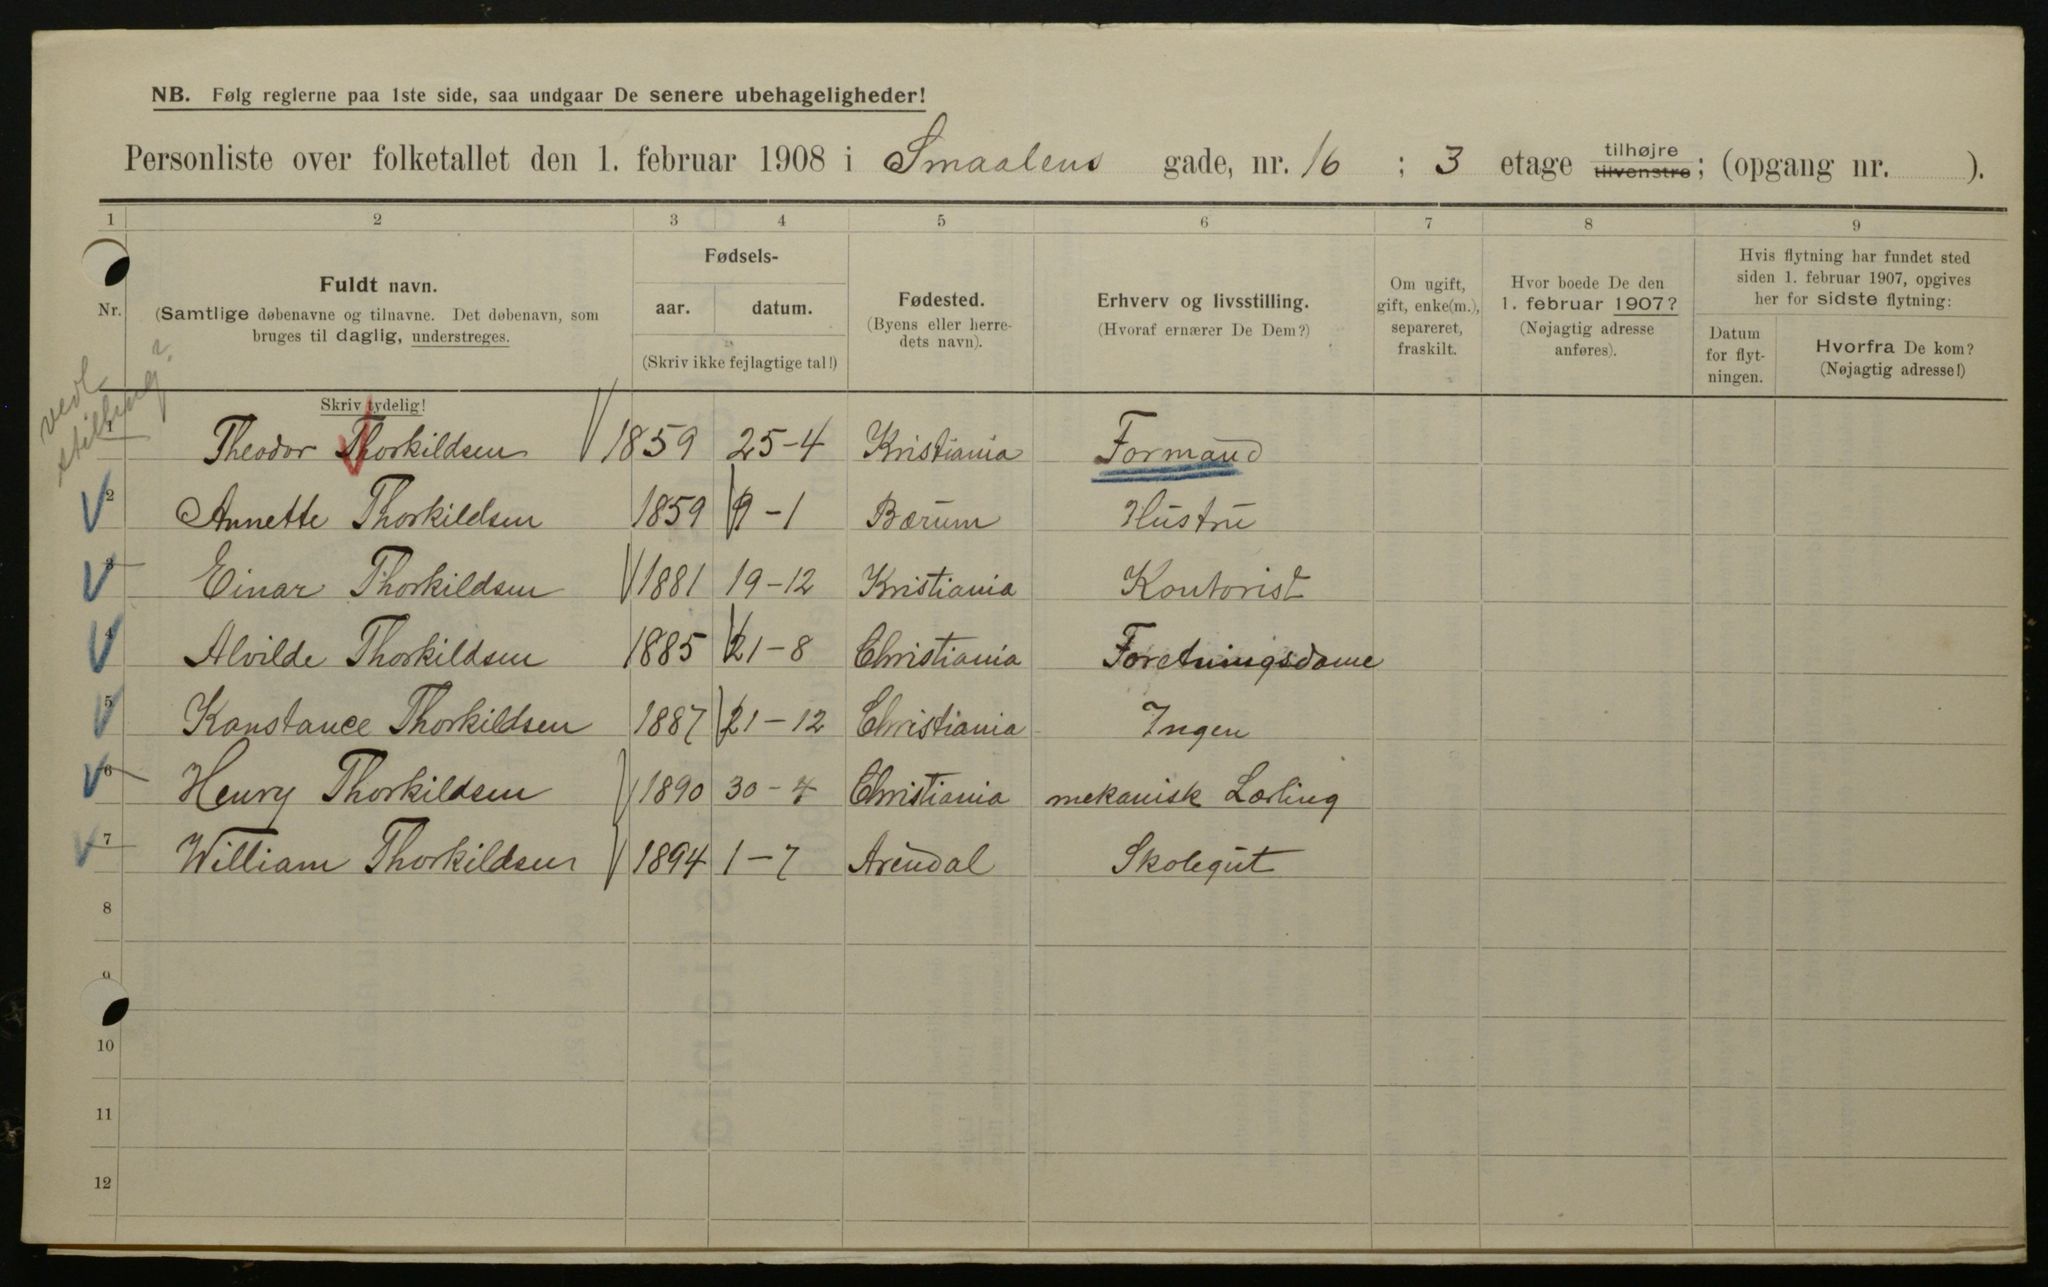 NB. Følg reglerne paa 1ste side, saa undgaar De senere ubehageligheder!
Personliste over folketallet den 1. februar 1908 i Smaalens gade, nr. 16 ; 3 etage tilhøjre tilvenstre; (opgang nr. ).
1 2 3 4 5 6 7 8 9
Nr.
Fuldt navn.
(Samtlige døbenavne og tilnavne. Det døbenavn, som
bruges til daglig, understreges.
Fødsels-
aar. datum.
(Skriv ikke fejlagtige tal!)
Fødested.
(Byens eller herre-
dets navn).
Erhverv og livsstilling.
(Hvoraf ernærer De Dem?)
Om ugift,
gift, enke(m.),
separeret,
fraskilt.
Hvor boede De den
1. februar 1907?
(Nøjagtig adresse
anføres).
Hvis flytning har fundet sted
siden 1. februar 1907, opgives
her for sidste flytning:
Datum
for flyt-
ningen.
Hvorfra De kom?
(Nøjagtig adresse!)
vedl.
stilling?
Skriv tydelig!
1 Theodor Thorkildsen 1859 25-4 Kristiania Formand
2 Annette Thorkildsen 1859 9-1 Bærum Hustru
3 Einar Thorkildsen 1881 19-12 Kristiania Kontorist
4 Alvilde Thorkildsen 1885 21-8 Christiania Foretningsdame
5 Konstance Thorkildsen 1887 21-12 Christiania Ingen
6 Henry Thorkildsen 1890 30-4 Christiania mekanisk Lærling
7 William Thorkildsen 1894 1-7 Arendal Skolegut
8
9
10
11
12